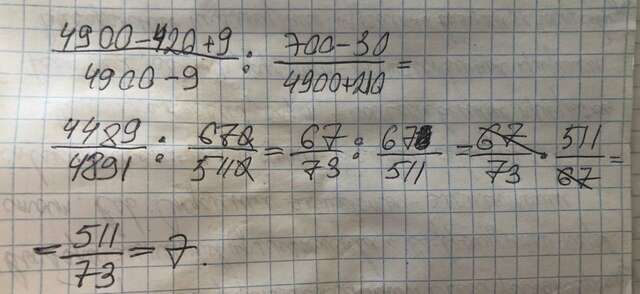 4900-420+9/4900-9 : 700-30/4900+210 =
4489/4891 : 670/5110 = 67/73 : 67/511 = 67/73 · 511/67 =
= 511/73 = 7.